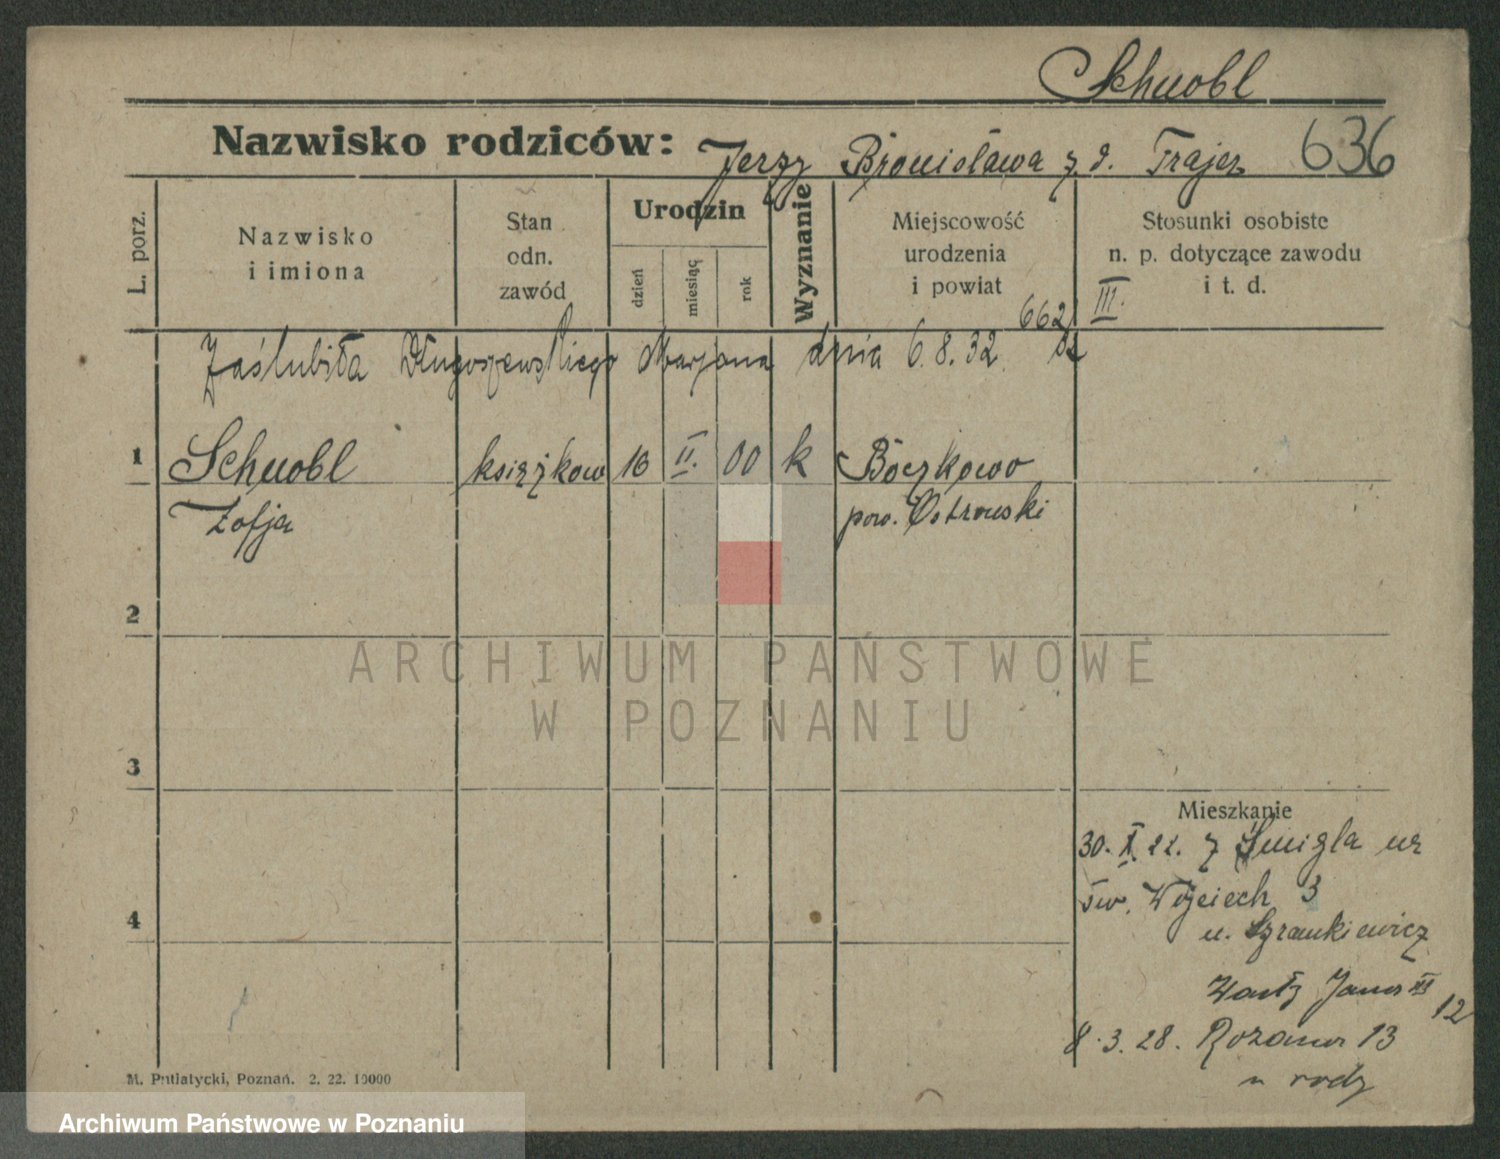 Schuobl
Nazwisko rodziców: Jerzy Bronisława z d. Trajer 636
L. porz.
Nazwisko
i imiona
Stan
odn.
zawód
Urodzin
dzień
miesiąc
rok
Wyznanie
Miejscowość
urodzenia
i powiat
Stosunki osobiste
n. p. dotyczące zawodu
i t. d.
662 III.
Zaślubiła Długoszewskiego Marjana dnia 6.8.32.
1 Schuobl książkow 16 II. 00 k Boczkowo
Zofja pow. Ostrowski
2
ARCHIWUM PAŃSTWOWE
W POZNANIU
3
Mieszkanie
30. X. 22. z Śmigla
św. Wojciech 3
4
u. Szrankiewicz
Jana III 12
8.3.28. Różana 13
u rodz
M. Putiatycki, Poznań. 2. 22. 10000
Archiwum Państwowe w Poznaniu